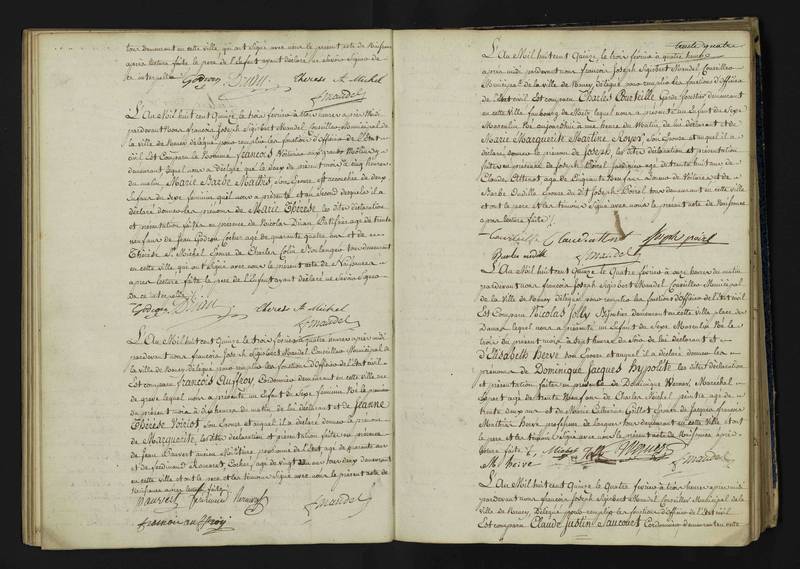 tous demeurant en cette ville, qui ont Signé avec nous le présent acte de Naissance
après lecture faite le pere de l'Enfant ayant déclaré ne Savoir Signer
de ce interpellé
Godron Drian Therese St Michel
Mandel
L'An Mil huit cent Quinze, le trois fevrier à heures après midi
pardevant nous françois Joseph Sigisbert Mandel Conseiller Municipal de
la ville de Nancy délégué pour remplir les fonctions d'Officier de l'Etat
civil Est Comparu le Nommé françois Voiturier aux grands Moulins y
demeurant lequel nous a déclaré que le deux du présent mois à cinq heures
du matin Marie Barbe Mathis Son Epouse est accouchée de deux
Enfans du Sexe feminin qu'il nous a présenté et au Second desquels il a
déclaré donner les prenoms de Marie Thérèse les dites déclaration
et présentation faites en présence de Nicolas Drian Patissier agé de trente
neuf ans de Jean Godron Cocher agé de quarante quatre ans et de
Thérèse St Michel Epouse de Charles Colin Boulanger tous demeurant
en cette ville, qui ont Signé avec nous le présent acte de Naissance
après lecture faite le pere de l'Enfant ayant déclaré ne Savoir Signer
de ce interpellé
Godron Drian Therese St Michel
Mandel
L'An Mil huit cent Quinze le trois fevrier à quatre heures après midi
pardevant nous françois Joseph Sigisbert Mandel Conseiller Municipal de
la ville de Nancy délégué pour remplir les fonctions d'Officier de l'Etat civil
Est comparu françois Auffroy Cordonnier demeurant en cette ville rue
de greve lequel nous a présenté un Enfant du Sexe feminin Né le premier
du présent mois à dix heures du matin, de lui déclarant et de Jeanne
Thérèse Voiriot Son Epouse et auquel il a déclaré donner le prenom
de Marguerite, les dites déclaration et présentation faites en présence
de Jean Mauvert ancien Militaire pensionné de l'Etat agé de quarante ans
et de ferdinand Cocher, agé de vingt ans tous deux demeurant
en cette ville et ont le pere et les temoins Signé avec nous le présent acte de
Naissance après lecture faite
Mauvert ferdinand
francois auffroy Mandel
trente quatre
L'An Mil huit cent Quinze, le trois fevrier à quatre heures
après midi pardevant nous françois Joseph Sigisbert Mandel Conseiller
Municipal de la ville de Nancy, délégué pour remplir les fonctions d'Officier
de l'Etat civil Est comparu Charles Courteille Garde forestier demeurant
en cette ville faubourg de Metz lequel nous a présenté un Enfant du Sexe
Masculin Né aujourd'hui à une heure du Matin de lui déclarant et de
Marie Marguerite Martine Royer Son Epouse et auquel il a
déclaré donner le prenom de Joseph, les dites déclaration et présentation
faites en présence de Joseph Poirel Jardinier agé de trente huit ans de
Claude Attenot agé de Cinquante neuf ans Loueur de Voitures et de
Barbe Dudille Epouse du dit Joseph Poirel tous demeurant en cette ville
et ont le pere et les temoins Signé avec nous le présent acte de Naissance
après lecture faite
Courteille Claude attenot Joseph poirel
Mandel
L'An Mil huit cent Quinze le Quatre fevrier à onze heures du matin
pardevant nous françois Joseph Sigisbert Mandel Conseiller Municipal
de la ville de Nancy délégué pour remplir les fonctions d'Officier de l'Etat civil
Est Comparu Nicolas Jolly demeurant en cette ville place de
lequel nous a présenté un Enfant du Sexe Masculin Né le
trois du présent mois à Sept heures du Soir de lui déclarant et
d'Elisabeth Herve Son Epouse et auquel il a déclaré donner les
prenoms de Dominique Jacques Hypolite les dites déclaration
et présentation faites en présence de Dominique Maréchal
Expert agé de trente Neuf ans de Charles Michel peintre agé de
trente deux ans et de Marie Catherine Gillot Epouse de Jacques françois
Mathieu Herve professeur de Langues tous demeurant en cette ville et ont
le pere et les temoins Signé avec nous le présent acte de Naissance après
lecture faite
Michel Jolly
M herve Mandel
L'An Mil huit cent Quinze, le Quatre fevrier à trois heures après midi
pardevant nous françois Joseph Sigisbert Mandel Conseiller Municipal de la
ville de Nancy, Délégué pour remplir les fonctions d'Officier de l'Etat civil
Est comparu Claude Justin Saucourt Cordonnier demeurant en cette